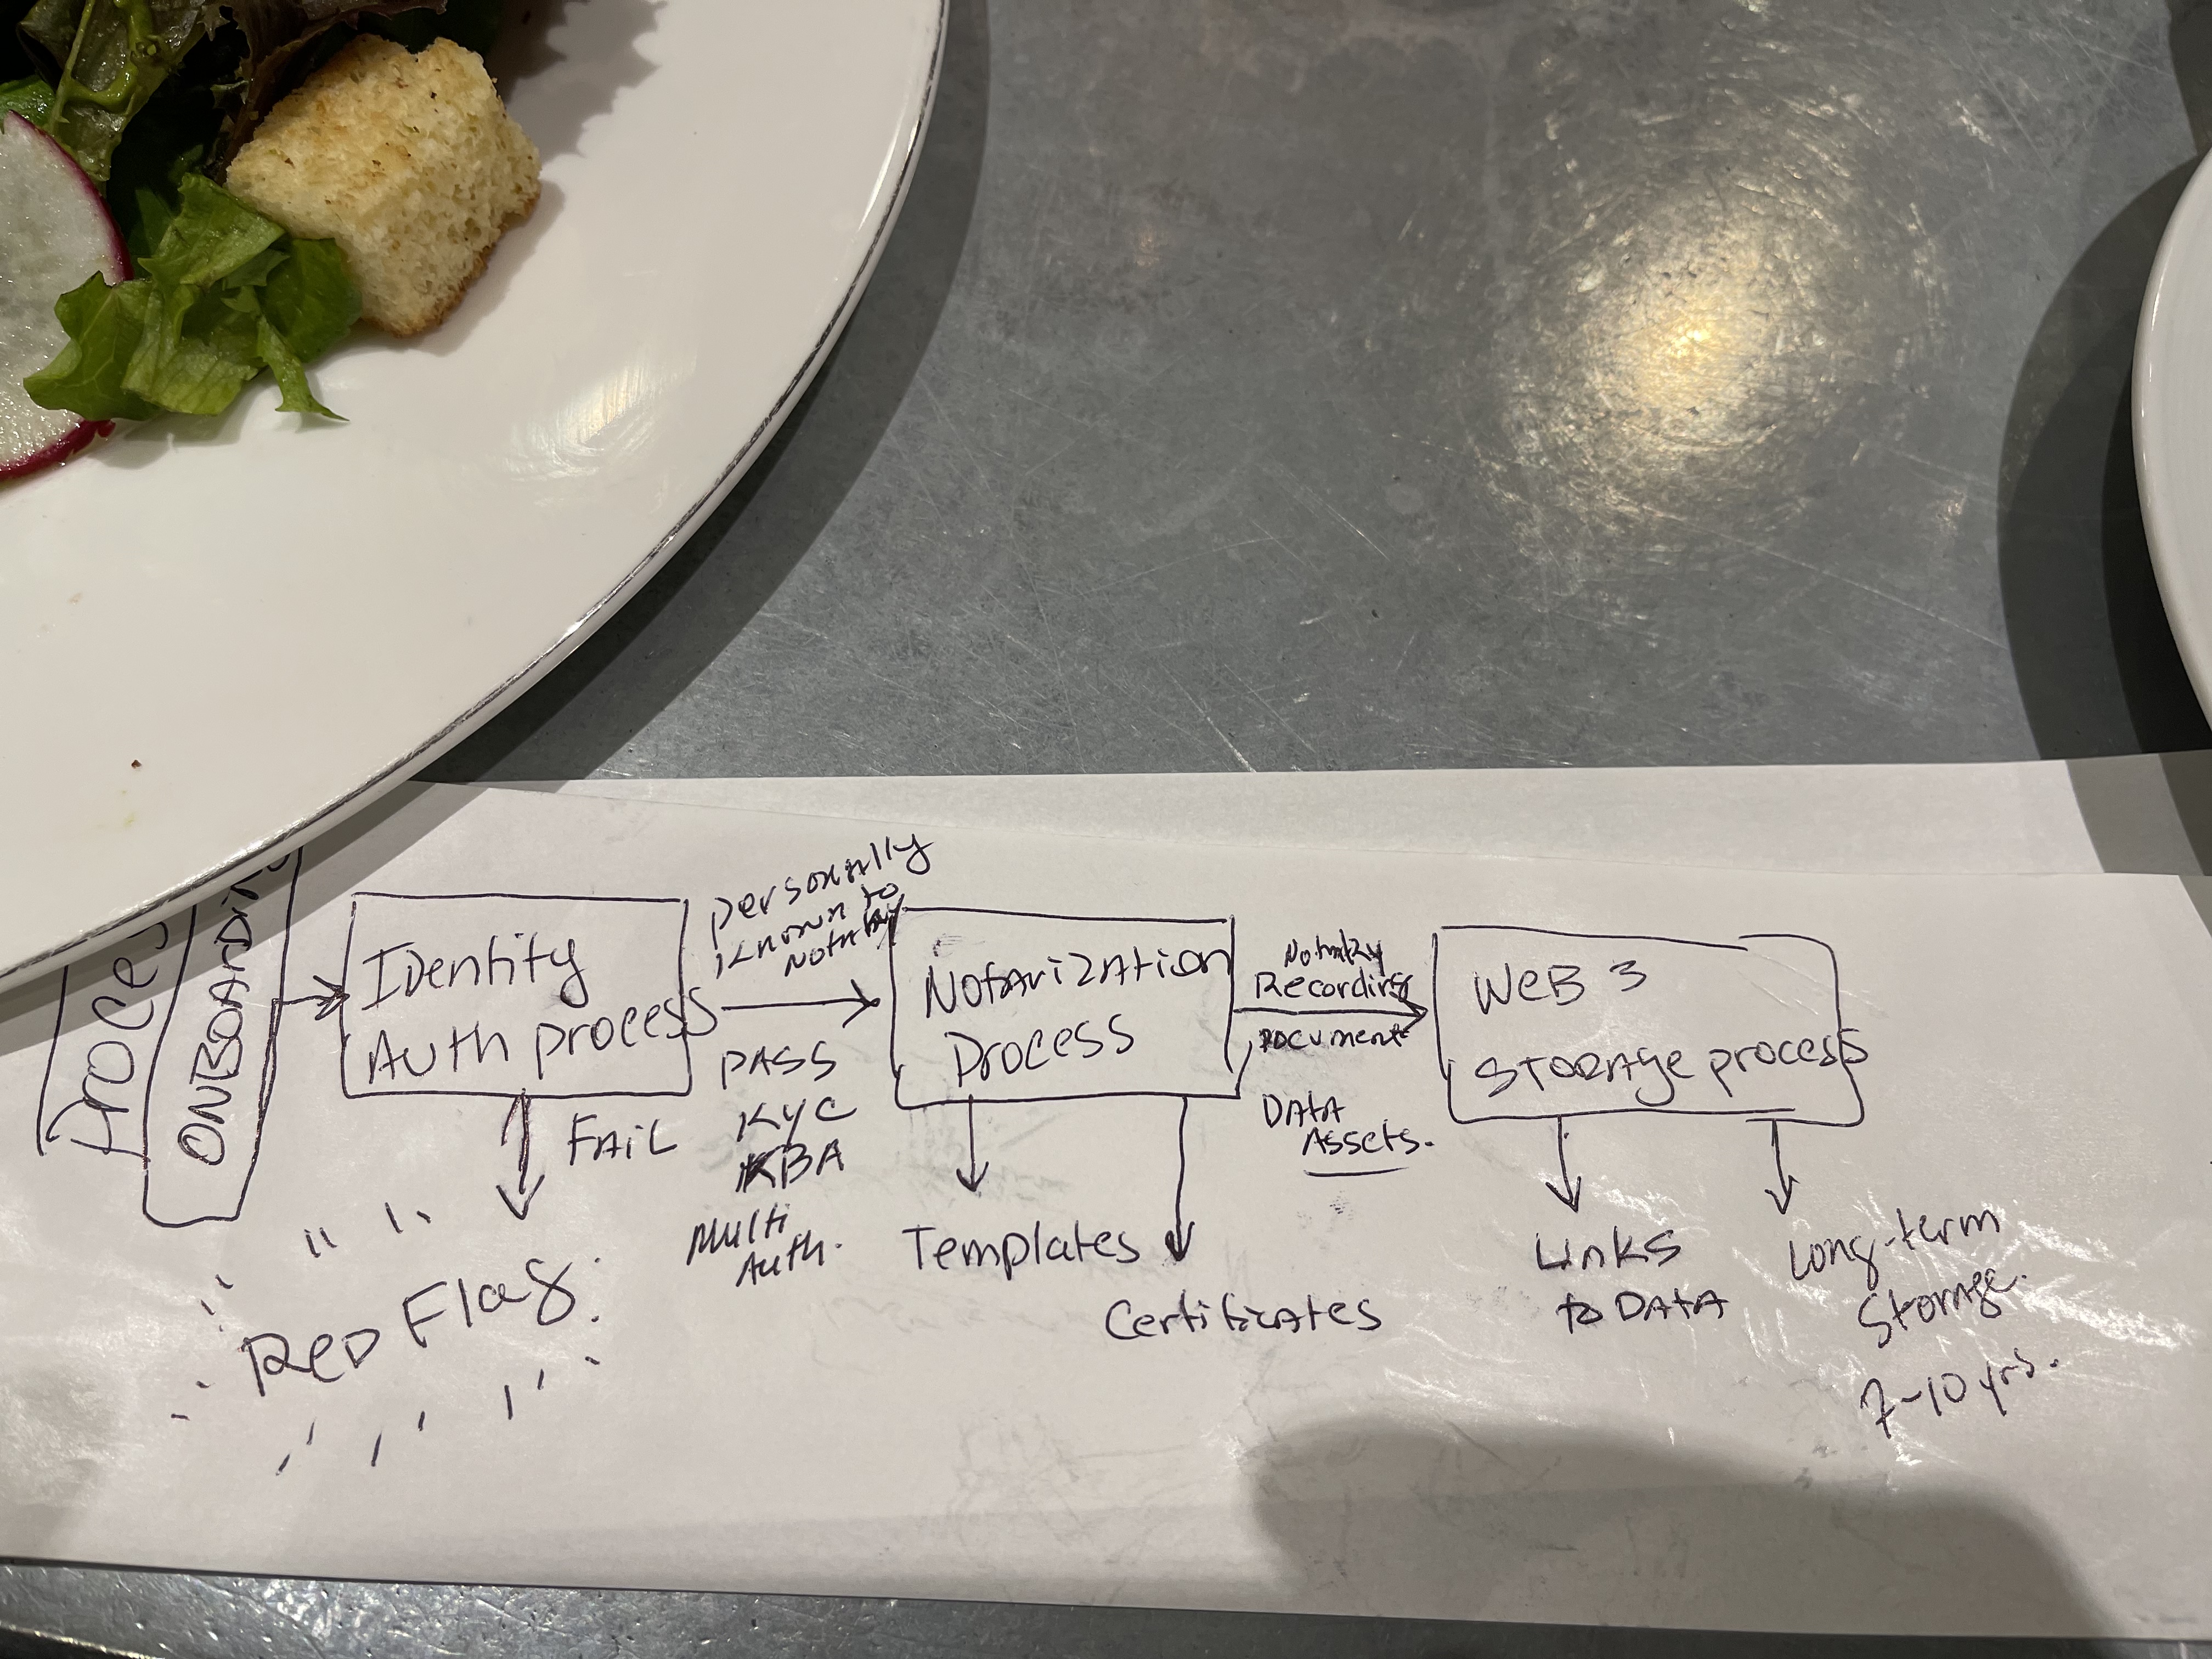 ONBOARDING
Identity
Auth process
FAIL
Red Flag
personally
known to
Notary
PASS
KYC
KBA
Multi
Auth.
Notarization
Process
Templates
Certificates
Notary
Recording
Document
DATA
Assets.
WeB 3
Storage process
Links
to DATA
Long-term
Storage.
7-10 yrs.